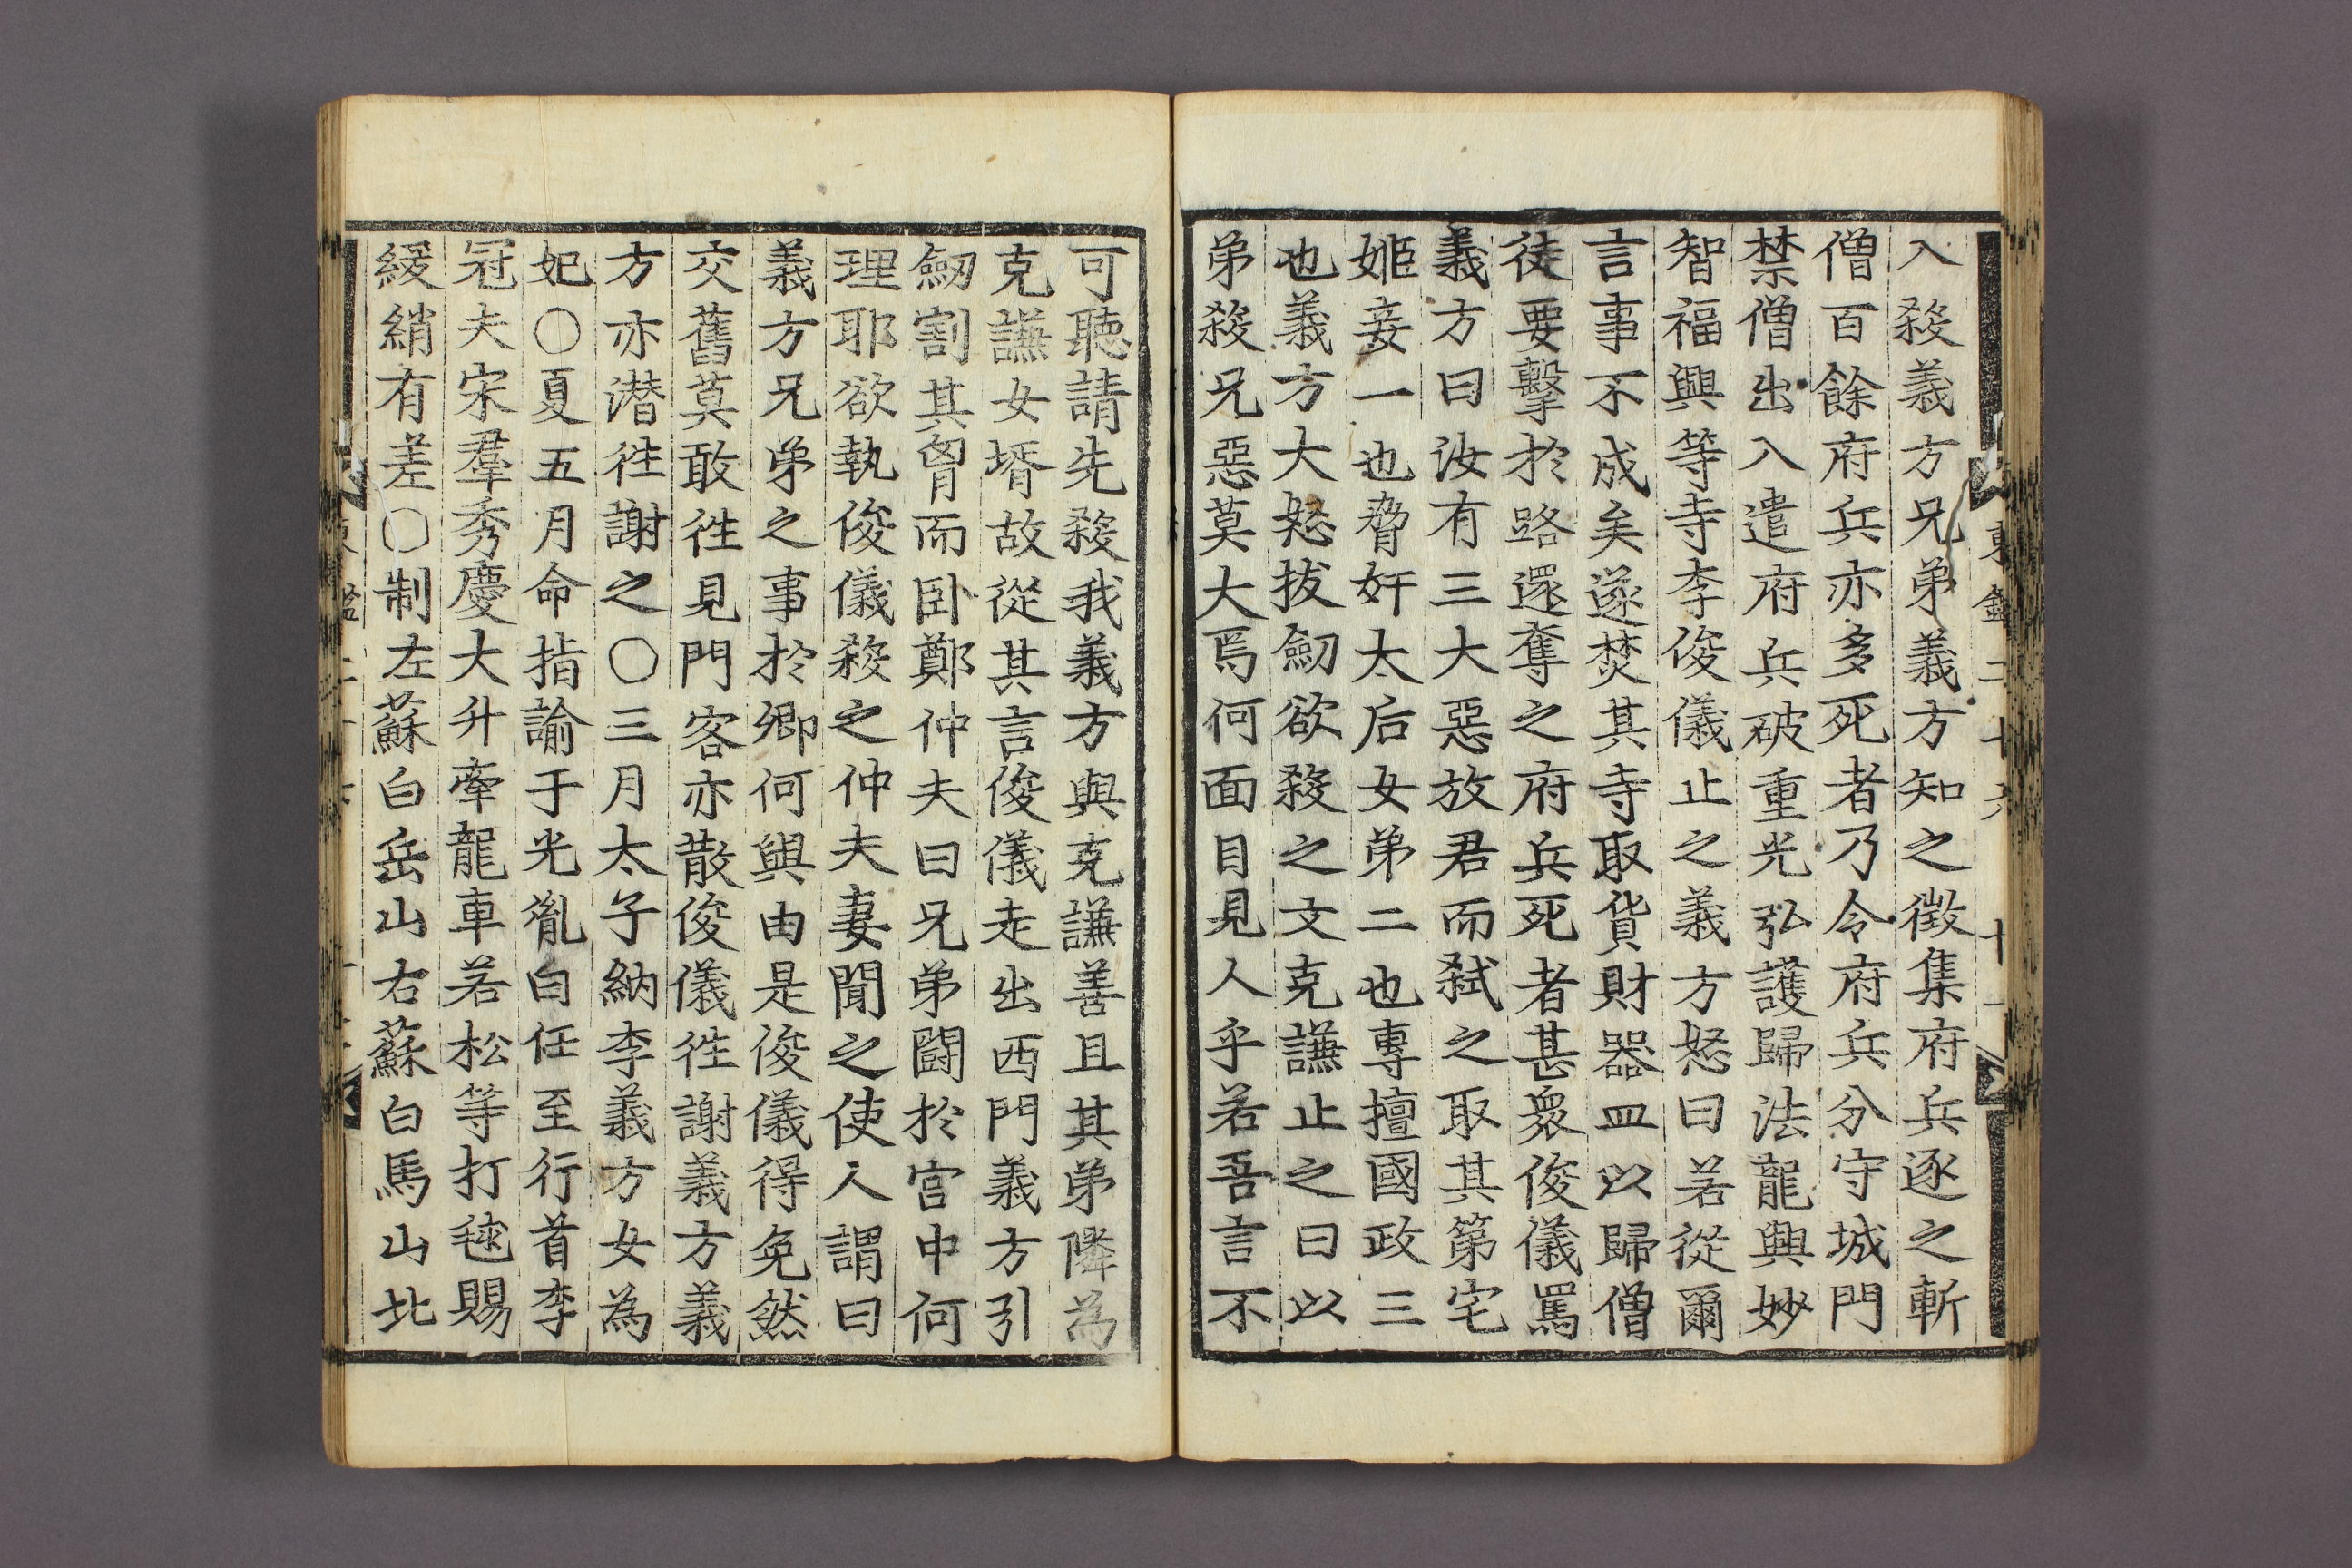 入殺義方兄弟義方知之徵集府兵逐之斬
僧百餘府兵亦多死者乃令府兵分守城門
禁僧出入遣府兵破重光弘護歸法龍興妙
智福興等寺李俊儀止之義方怒曰若從爾
言事不成矣遂焚其寺取貨財器皿以歸僧
徒要擊於路還奪之府兵死者甚衆俊儀罵
義方曰汝有三大惡放君而弑之取其第宅
姬妾一也脅奸太后女弟二也專擅國政三
也義方大怒拔劒欲殺之文克謙止之曰以
弟殺兄惡莫大焉何面目見人乎若吾言不
可聽請先殺我義方與克謙善且其弟隣為
克謙女壻故從其言俊儀走出西門義方引
劒割其胷而卧鄭仲夫曰兄弟鬪於宮中何
理耶欲執俊儀殺之仲夫妻聞之使人謂曰
義方兄弟之事於卿何與由是俊儀得免然
交舊莫敢徃見門客亦散俊儀徃謝義方義
方亦潜徃謝之〇三月太子納李義方女為
妃〇夏五月命指諭于光胤白任至行首李
冠夫宋羣秀慶大升牽龍車若松等打毬賜
緩綃有差〇制左蘇白岳山右蘇白馬山北
東鑑二十六 十一